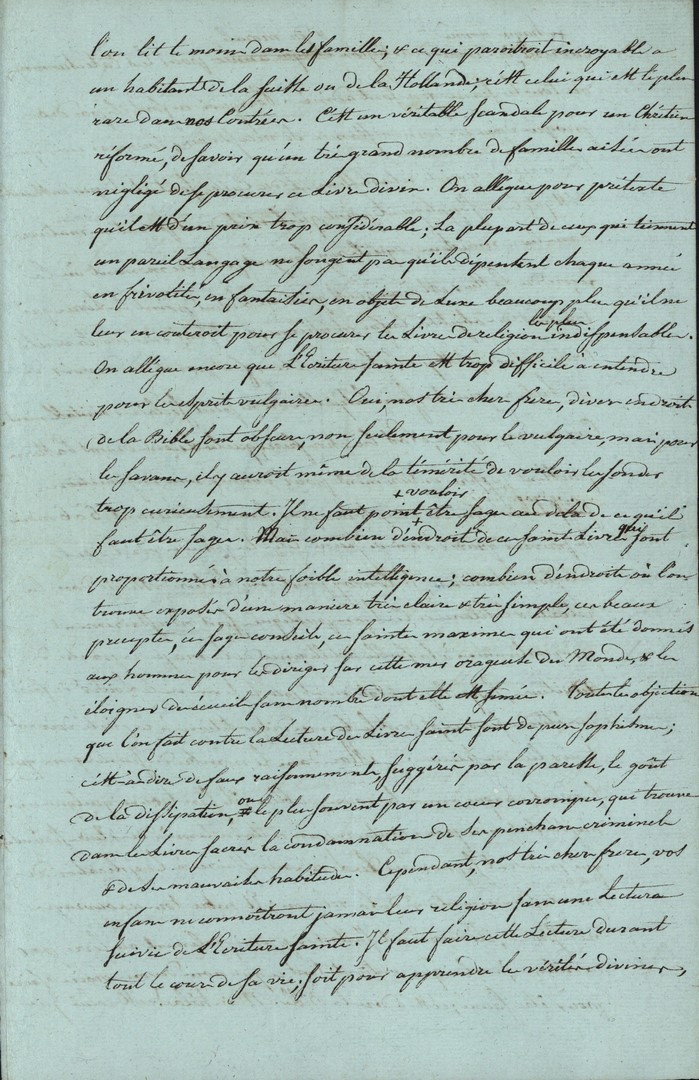 l'on lit le moins dans les familles; & ce qui paroitroit incroyable a
un habitant de la suisse ou de la Hollande; c'est celui qui est le plus
rare dans nos Contrées. C'est un véritable scandale pour un Chrétien
réformé, de savoir qu'un très grand nombre de familles aisées ont
négligé de se procurer ce Livre divin. On allégue pour prétexte
qu'il est d'un prix trop considérable; La plupart de ceux qui tiennent
un pareil Langage ne songent pas qu'ils dépensent chaque année
en frivolités, en fantaisies, en objets de Luxe beaucoup plus qu'il ne
leur en couteroit pour se procurer les Livres de religion les plus indispensables.
On allégue encore que L'Ecriture sainte est trop difficile a entendre
pour les esprits vulgaires. Oui, nos très chers freres, divers endroits
de la Bible sont obscurs, non seulement pour le vulgaire, mais pour
les savans, il y auroit même de la témérité de vouloir les sonder
trop curieusement. Il ne faut point + vouloir être sage au delà de ce qu'il
faut être sages. Mais combien d'endroits de ce saint Livre qui sont
proportionnés à notre foible intelligence; combien d'endroits où l'on
trouve exposés d'une maniere très claire & très simple, ces beaux
preceptes, ces sages conseils, ces saintes maximes qui ont été donnés
aux hommes pour les diriger sur cette mer orageuse du Monde, & les
éloigner des écueils sans nombre dont elle est semée. Toutes les objections
que l'on fait contre la Lecture des Livres saints sont de purs sophismes;
c'est-à-dire de faux raisonnements, suggérés par la paresse, le goût
de la dissipation, ou le plus souvent par un coeur corrompu, qui trouve
dans les Livres sacrés la condamnation de ses penchans criminels
& de ses mauvaises habitudes. Cependant, nos très chers freres, vos
enfans ne connoîtront jamais leur religion sans une Lecture
suivie de L'Ecriture sainte. Il faut faire cette Lecture durant
tout le cours de sa vie; soit pour apprendre les vérités divines,